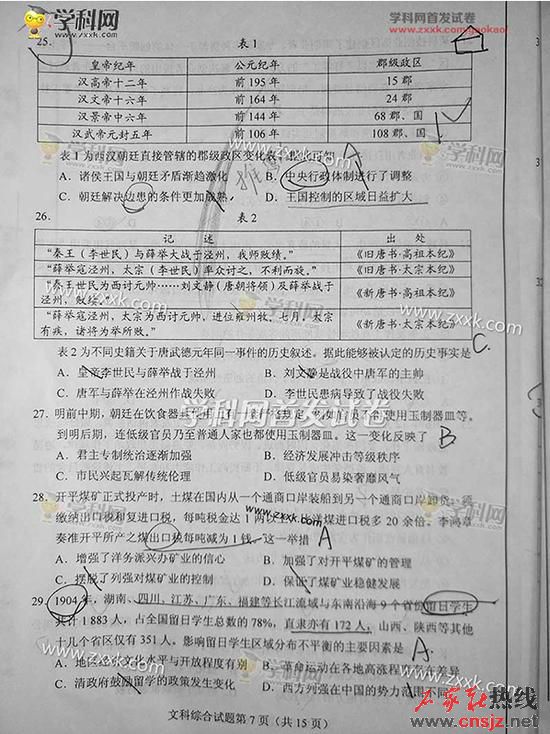 学科网
www.zxxk.com
学科网首发试卷
www.zxxk.com/gaokao
25.
表 1
皇帝纪年 公元纪年 郡级政区
汉高帝十二年 前 195 年 15 郡
汉文帝十六年 前 164 年 24 郡
汉景帝中六年 前 144 年 68 郡、国
汉武帝元封五年 前 106 年 108 郡、国
表 1 为西汉朝廷直接管辖的郡级政区变化表。 可知
A
A．诸侯王国与朝廷矛盾渐趋激化 B．中央行政体制进行了调整
C．朝廷解决边患的条件更加成熟 D．王国控制的区域日益扩大
26.
表 2
记 述 出 处
“秦王（李世民）与薛举大战于泾州，我师败绩。” 《旧唐书·高祖本纪》
“薛举寇泾州，太宗（李世民）率众讨之，不利而旋。” 《旧唐书·太宗本纪》
“秦王世民为西讨元帅……刘文静（唐朝将领）及薛举战于 《新唐书·高祖本纪》
泾州，败绩。”
“薛举寇泾州，太宗为西讨元帅，进位雍州牧。七月，太宗 《新唐书·太宗本纪》
有疾，诸将为举所败。”
C.
表 2 为不同史籍关于唐武德元年同一事件的历史叙述。据此能够被认定的历史事实是
A．皇帝李世民与薛举战于泾州 B．刘文静是战役中唐军的主帅
C．唐军与薛举在泾州作战失败 D．李世民患病导致了战役失败
学科网首发试卷
27．明前中期，朝廷在饮食器具 使用玉制器皿等。
到明后期，连低级官员乃至普通人家也都使用玉制器皿。这一变化反映了
B
A．君主专制统治逐渐加强 B．经济发展冲击等级秩序
C．市民兴起瓦解传统伦理 D．低级官员易染奢靡风气
28．开平煤矿正式投产时，土煤在国内从一个通商口岸装船到另一个通商口岸卸货，
缴纳出口税和复进口税，每吨税金达 1 两 洋煤进口税多 20 余倍。李鸿章
奏准开平所产之煤出口税每吨减为 1 钱。这一举措
A
A．增强了洋务派兴办矿业的信心 B．加强了对开平煤矿的管理
C．摆脱了列强对煤矿业的控制 D．保证了煤矿业稳健发展
29．1904 年，湖南、四川、江苏、广东、福建等长江流域与东南沿海 9 个省份留日学生
共计 1 883 人，占全国留日学生总数的 78%，直隶亦有 172 人，山西、陕西等其他
十几个省区仅有 351 人。影响留日学生区域分布不平衡的主要因素是
A.
A．地区经济文化水平与开放程度有别 B．革命运动在各地高涨程度存在差异
C．清政府鼓励留学的政策发生变化 D．西方列强在中国的势力范围不同
文科综合试题第 7 页（共 15 页）
热线
www.cnsjz.net